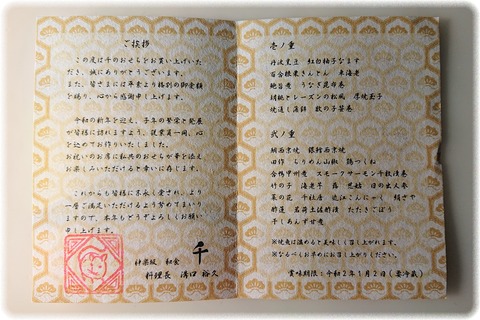 ご挨拶
この度は千のおせちをお買い上げいた
だき、誠にありがとうございます。
また、皆さまには平素より格別の御愛顧
を賜り、心から感謝申し上げます。
令和の新年を迎え、子年の繁栄と発展
が皆様に訪れますよう、従業員一同、心
を込めてお作りいたしました。
お祝いのお席に私共のおせちが華を添え
お楽しみいただけると幸いに存じます。
これからも皆様に末永く愛され、より
一層ご満足いただけるよう努めてまいり
ますので、本年もどうぞよろしくお願い
申し上げます。
神楽坂 和食 千
料理長 溝口 裕久
壱ノ重
丹波黒豆 紅白柚子なます
百合根栗きんとん 車海老
鮑旨煮 うなぎ昆布巻
胡桃とレーズンの松風 厚焼玉子
焼通し蒲鉾 数の子
弐ノ重
鯛西京焼 銀鱈西京焼
田作 ちりめん山椒 鶏つくね
合鴨甲州煮 スモークサーモン千枚漬巻
竹の子 海老芋 蕗 慈姑 日の出人参
菜の花 手杜唐 近江こんにゃく 絹さや
酢蓮 茗荷土佐酢漬 たたきごぼう
干しあんず甘煮
※焼魚は温めると美味しく召し上がれます。
※なるべくお早めにお召し上がりください。
賞味期限：令和2年1月2日（要冷蔵）